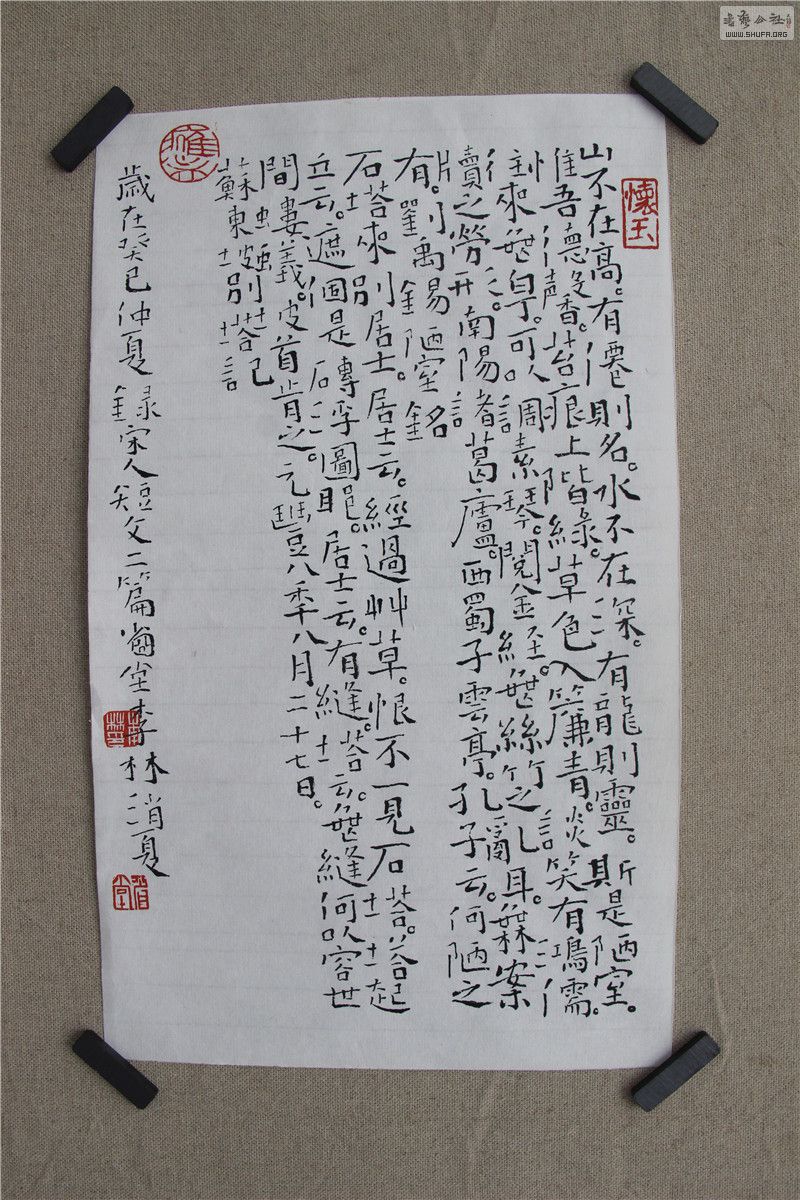 懷玉
山不在高。有僊則名。水不在深。有龍則靈。斯是陋室。
惟吾德馨。苔痕上階綠。草色入簾青。談笑有鴻儒。
往來無白丁。可以調素琴。閱金經。無絲竹之亂耳。無案
牘之勞形。南陽諸葛廬。西蜀子雲亭。孔子云。何陋之
有。劉禹錫陋室銘
石塔來別居士。居士云。經過艸草。恨不一見石塔。塔起
立云。遮個是塼浮圖耶。居士云。有縫塔。云。無縫何以容世
間螻蟻。坡首肯之。元豐八年八月二十七日。
蘇東坡別塔
歲在癸巳仲夏錄宋人短文二篇堂李林消夏
WWW.SHUFA.ORG